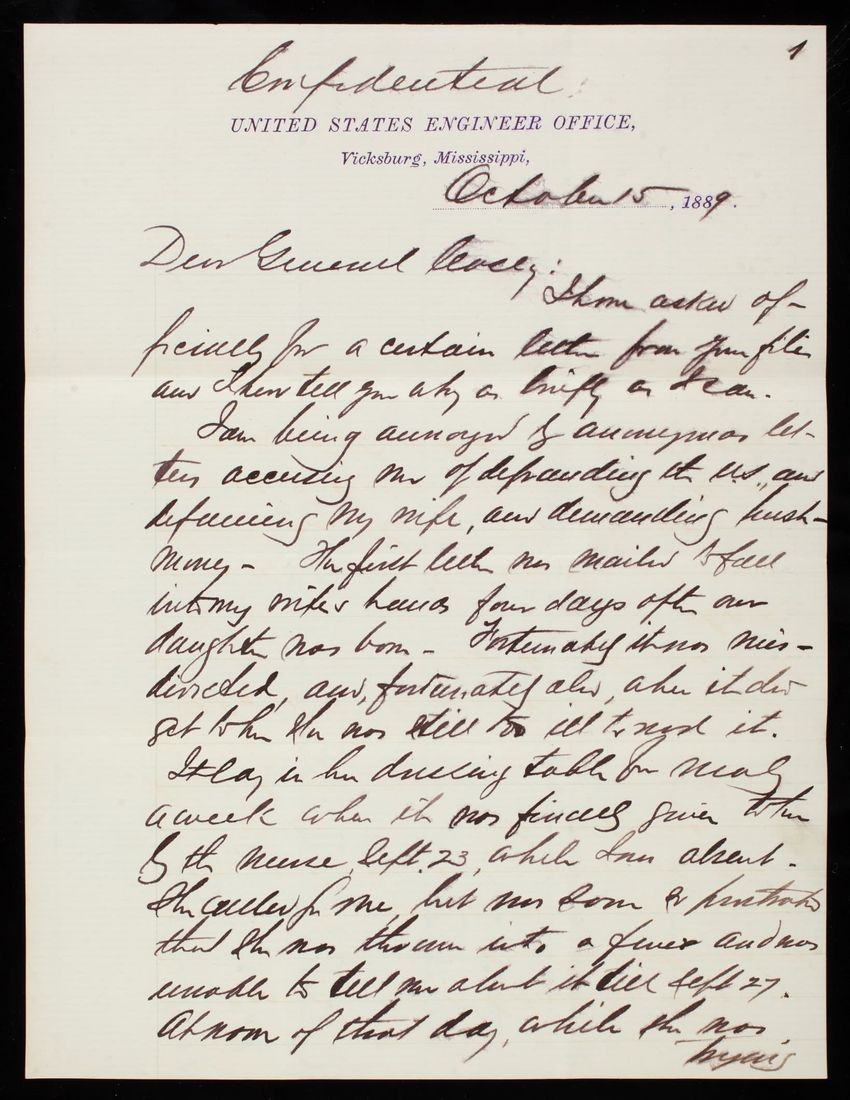 1
Confidential
UNITED STATES ENGINEER OFFICE,
Vicksburg, Mississippi,
October 15, 1889.
Dear General Casey:
I have asked of-
ficially for a certain letter from your files
and I now tell you why as briefly as I can.
I am being annoyed by anonymous let-
ters accusing me of defrauding the U.S., and
defaming my wife, and demanding hush-
money - The first letter was mailed to fall
into my wife's hands four days after our
daughter was born - Fortunately it was mis-
directed, and, fortunately also, when it did
get to her she was still too ill to read it.
It lay in her dressing table for nearly
a week when it was finally given to her
by the nurse, Sept. 23, while I was absent.
She called for me, but was soon so prostrated
that she was thrown into a fever and was
unable to tell me about it till Sept 27.
At noon of that day, while she was
trying